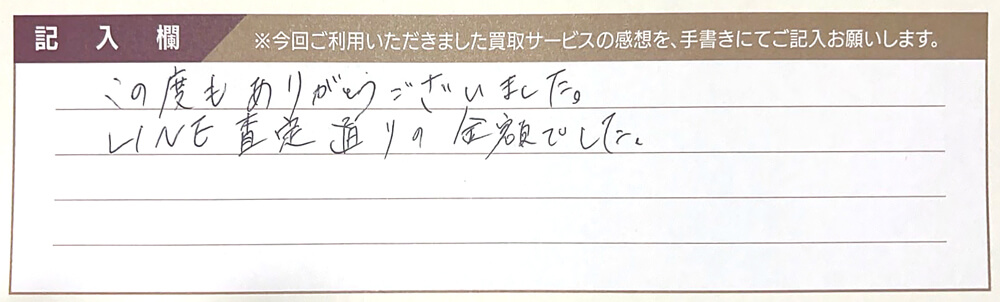 記入欄
※今回ご利用いただきました買取サービスの感想を、手書きにてご記入お願いします。
この度もありがとうございました。
LINE査定通りの金額でした。